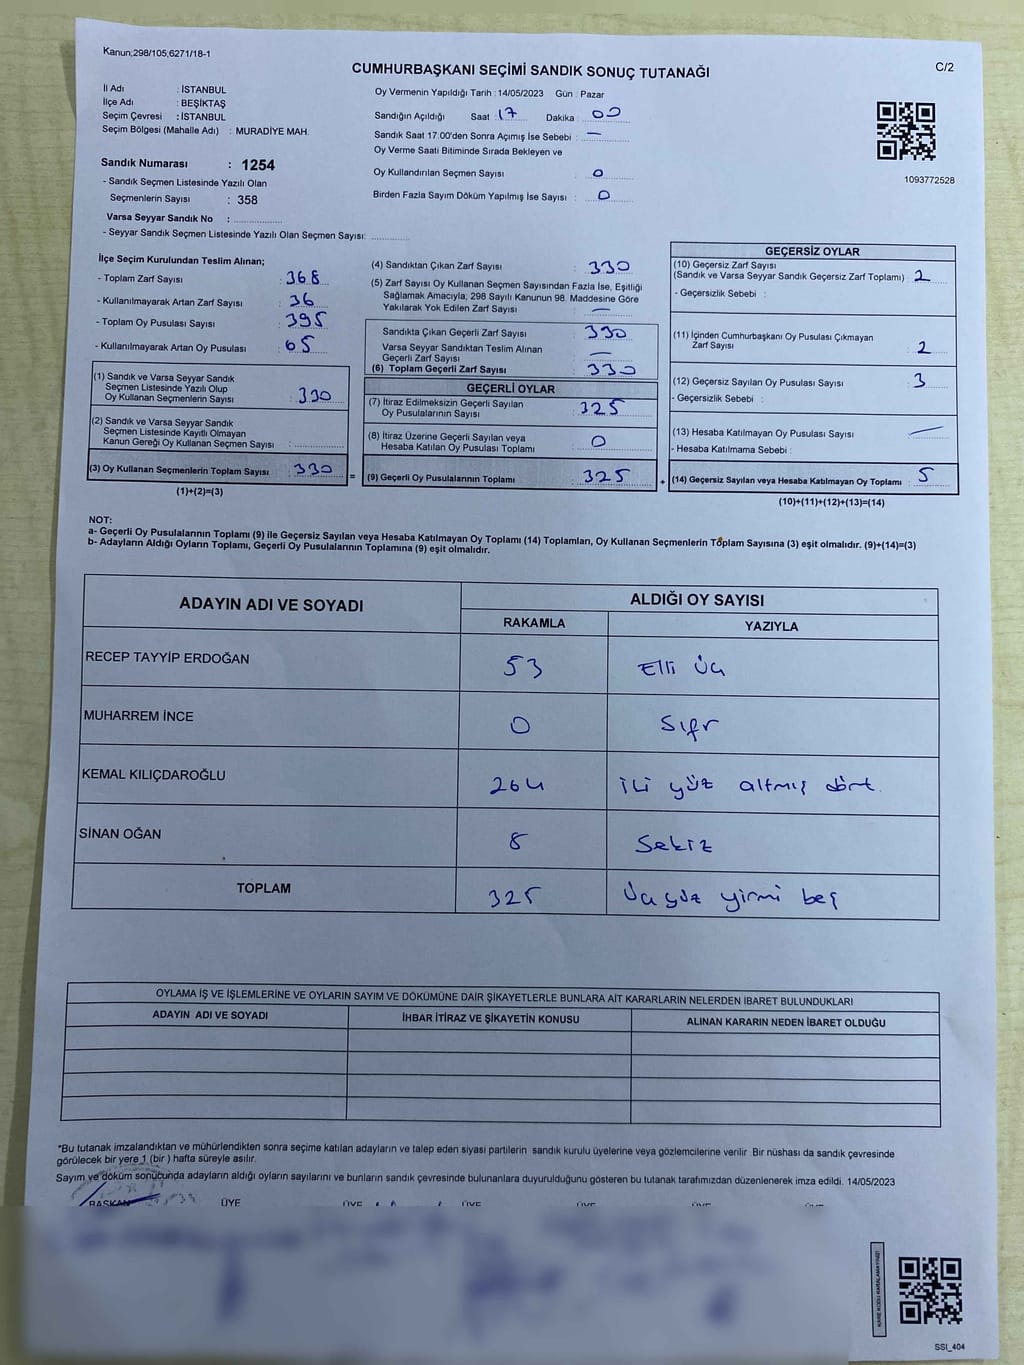 Kanun;298/105;6271/18-1
C/2
CUMHURBAŞKANI SEÇİMİ SANDIK SONUÇ TUTANAĞI
İl Adı : İSTANBUL
İlçe Adı : BEŞİKTAŞ
Seçim Çevresi : İSTANBUL
Seçim Bölgesi (Mahalle Adı) : MURADİYE MAH.
Sandık Numarası : 1254
- Sandık Seçmen Listesinde Yazılı Olan
Seçmenlerin Sayısı : 358
Varsa Seyyar Sandık No :
- Seyyar Sandık Seçmen Listesinde Yazılı Olan Seçmen Sayısı:
Oy Vermenin Yapıldığı Tarih : 14/05/2023 Gün : Pazar
Sandığın Açıldığı Saat : 17 Dakika : 00
Sandık Saat 17.00'den Sonra Açımış İse Sebebi : —
Oy Verme Saati Bitiminde Sırada Bekleyen ve
Oy Kullandırılan Seçmen Sayısı : 0
Birden Fazla Sayım Döküm Yapılmış İse Sayısı : 0
1093772528
İlçe Seçim Kurulundan Teslim Alınan;
- Toplam Zarf Sayısı : 368
- Kullanılmayarak Artan Zarf Sayısı : 36
- Toplam Oy Pusulası Sayısı : 395
- Kullanılmayarak Artan Oy Pusulası : 65
(1) Sandık ve Varsa Seyyar Sandık
Seçmen Listesinde Yazılı Olup
Oy Kullanan Seçmenlerin Sayısı : 330
(2) Sandık ve Varsa Seyyar Sandık
Seçmen Listesinde Kayıtlı Olmayan
Kanun Gereği Oy Kullanan Seçmen Sayısı :
(3) Oy Kullanan Seçmenlerin Toplam Sayısı : 330
(1)+(2)=(3)
(4) Sandıktan Çıkan Zarf Sayısı : 330
(5) Zarf Sayısı Oy Kullanan Seçmen Sayısından Fazla İse, Eşitliği
Sağlamak Amacıyla, 298 Sayılı Kanunun 98. Maddesine Göre
Yakılarak Yok Edilen Zarf Sayısı : —
Sandıkta Çıkan Geçerli Zarf Sayısı : 330
Varsa Seyyar Sandıktan Teslim Alınan
Geçerli Zarf Sayısı : —
(6) Toplam Geçerli Zarf Sayısı : 330
GEÇERLİ OYLAR
(7) İtiraz Edilmeksizin Geçerli Sayılan
Oy Pusulalarının Sayısı : 325
(8) İtiraz Üzerine Geçerli Sayılan veya
Hesaba Katılan Oy Pusulası Toplamı : 0
= (9) Geçerli Oy Pusulalarının Toplamı : 325 +
GEÇERSİZ OYLAR
(10) Geçersiz Zarf Sayısı
(Sandık ve Varsa Seyyar Sandık Geçersiz Zarf Toplamı) : 2
- Geçersizlik Sebebi :
(11) İçinden Cumhurbaşkanı Oy Pusulası Çıkmayan
Zarf Sayısı : 2
(12) Geçersiz Sayılan Oy Pusulası Sayısı : 3
- Geçersizlik Sebebi :
(13) Hesaba Katılmayan Oy Pusulası Sayısı : —
- Hesaba Katılmama Sebebi :
(14) Geçersiz Sayılan veya Hesaba Katılmayan Oy Toplamı : 5
(10)+(11)+(12)+(13)=(14)
NOT:
a- Geçerli Oy Pusulalarının Toplamı (9) ile Geçersiz Sayılan veya Hesaba Katılmayan Oy Toplamı (14) Toplamları, Oy Kullanan Seçmenlerin Toplam Sayısına (3) eşit olmalıdır. (9)+(14)=(3)
b- Adayların Aldığı Oyların Toplamı, Geçerli Oy Pusulalarının Toplamına (9) eşit olmalıdır.
ADAYIN ADI VE SOYADI ALDIĞI OY SAYISI
RAKAMLA YAZIYLA
RECEP TAYYİP ERDOĞAN 53 Elli Üç
MUHARREM İNCE 0 Sıfır
KEMAL KILIÇDAROĞLU 264 iki yüz altmış dört.
SİNAN OĞAN 8 Sekiz
TOPLAM 325 Üçyüz yirmi beş
OYLAMA İŞ VE İŞLEMLERİNE VE OYLARIN SAYIM VE DÖKÜMÜNE DAİR ŞİKAYETLERLE BUNLARA AİT KARARLARIN NELERDEN İBARET BULUNDUKLARI
ADAYIN ADI VE SOYADI İHBAR İTİRAZ VE ŞİKAYETİN KONUSU ALINAN KARARIN NEDEN İBARET OLDUĞU
*Bu tutanak imzalandıktan ve mühürlendikten sonra seçime katılan adayların ve talep eden siyasi partilerin sandık kurulu üyelerine veya gözlemcilerine verilir Bir nüshası da sandık çevresinde
görülecek bir yere 1 (bir ) hafta süreyle asılır.
Sayım ve döküm sonucunda adayların aldığı oyların sayılarını ve bunların sandık çevresinde bulunanlara duyurulduğunu gösteren bu tutanak tarafımızdan düzenlenerek imza edildi. 14/05/2023
BAŞKAN ÜYE ÜYE ÜYE ÜYE ÜYE ÜYE
SSI_404